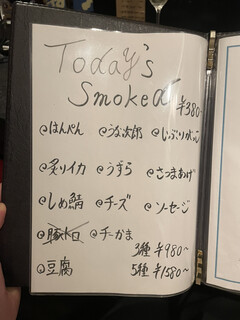 Today's
Smoked
¥380
@はんぺん @うな次郎
@炙りイカ @うずら @さつまあげ
@しめ鯖 @チーズ @ソーセージ
@豚トロ @チーかま
3種 ¥980〜
@豆腐 5種 ¥1580〜